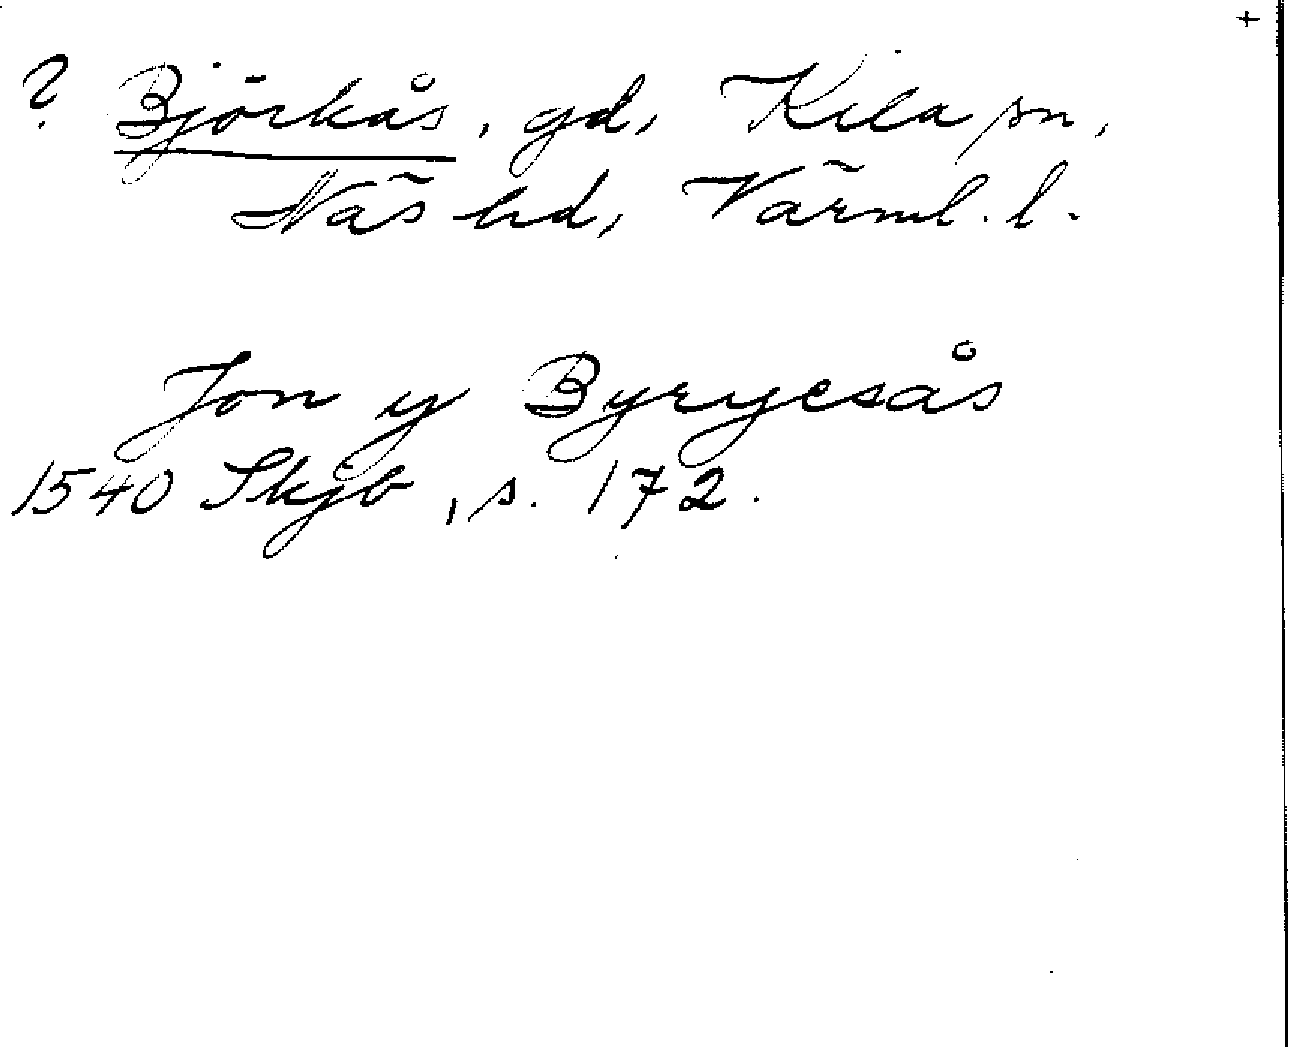 +
? Björkås, gd, Kila sn,
Näs hd, Värml. l.
Jon y Byryesås
1540 Skjb, s. 172.